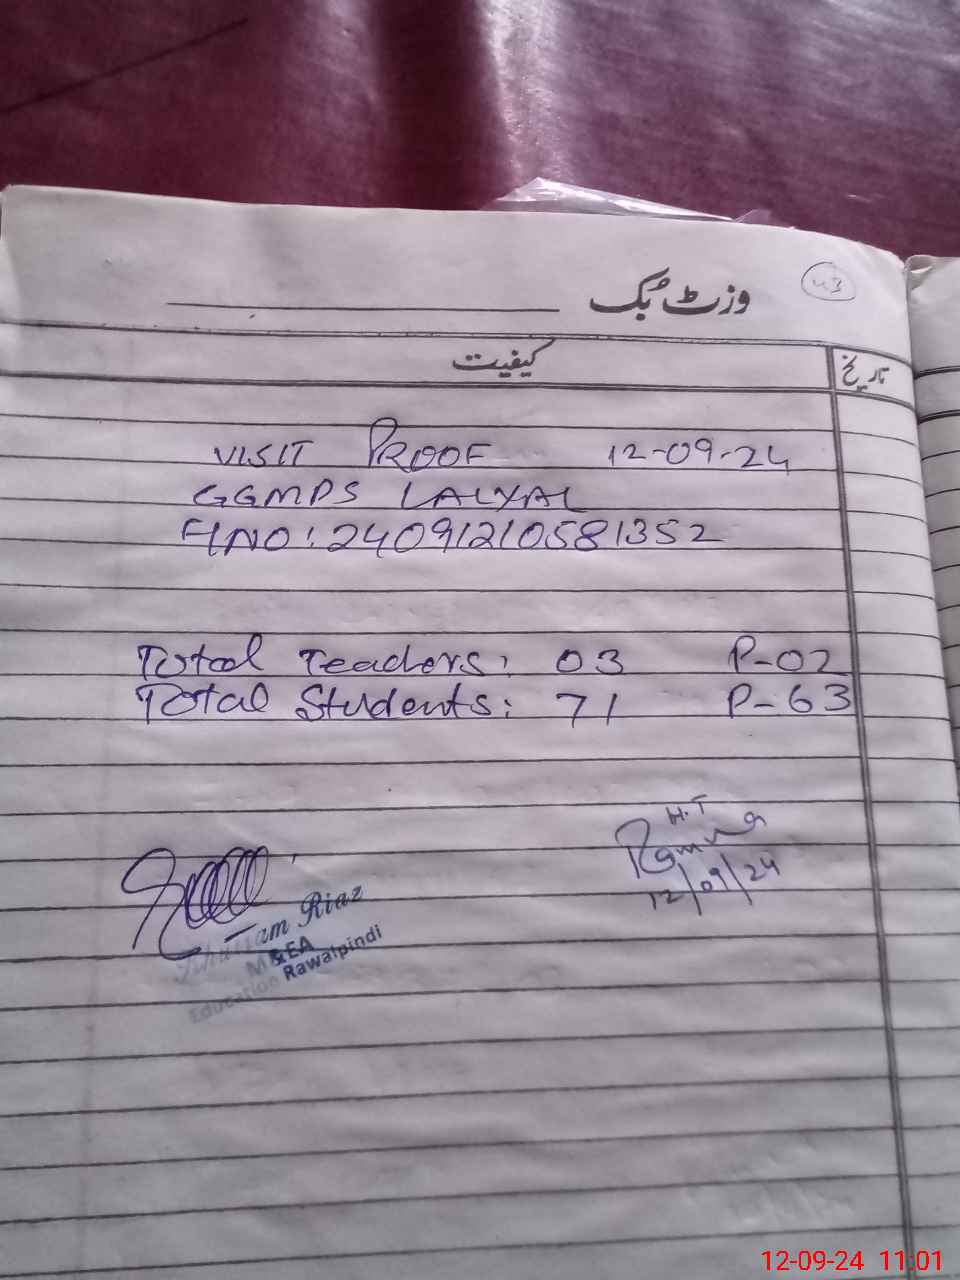 وزٹ بُک
43
کیفیت
تاریخ
VISIT PROOF 12-09-24
GGMPS LALYAL
HNO: 24091210581352
Total Teachers: 03 P-02
Total Students: 71 P-63
H.T
Ramna
12/09/24
Riaz
M&EA
Education Rawalpindi
12-09-24 11:01